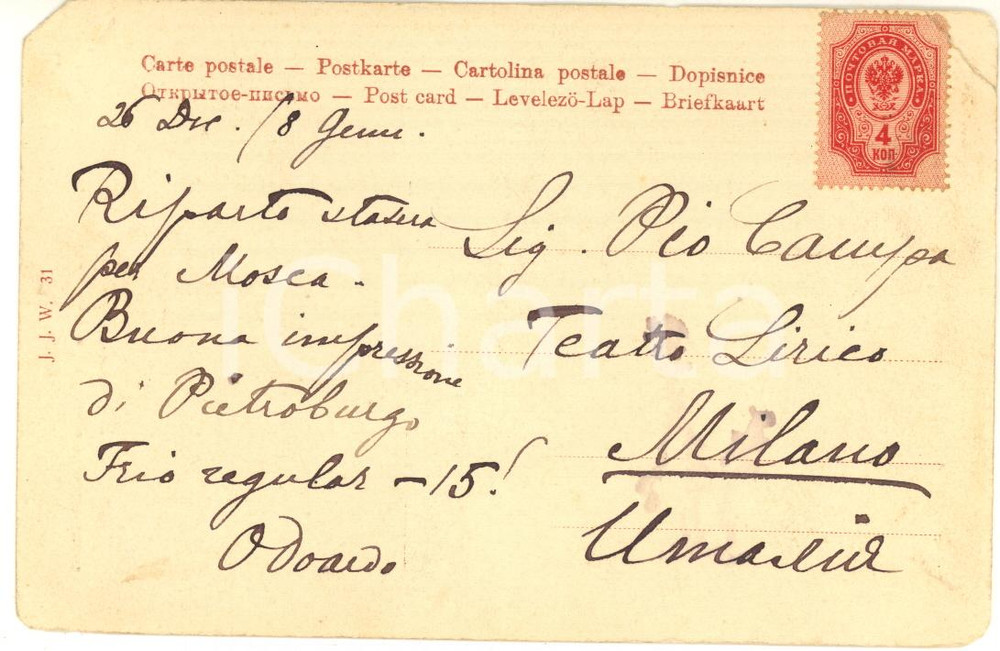 Carte postale — Postkarte — Cartolina postale — Dopisnice
Открытое-письмо — Post card — Levelező-Lap — Briefkaart
ПОЧТОВАЯ МАРКА
4
КОП.
26 Dic. / 8 Genn.
Riparto stasera
per Mosca.
Buona impressione
di Pietroburgo
Frio regular - 15!
Odoardo
Sig. Pio Campa
Teatro Lirico
Milano
Италия
J. J. W. 31
iCharta